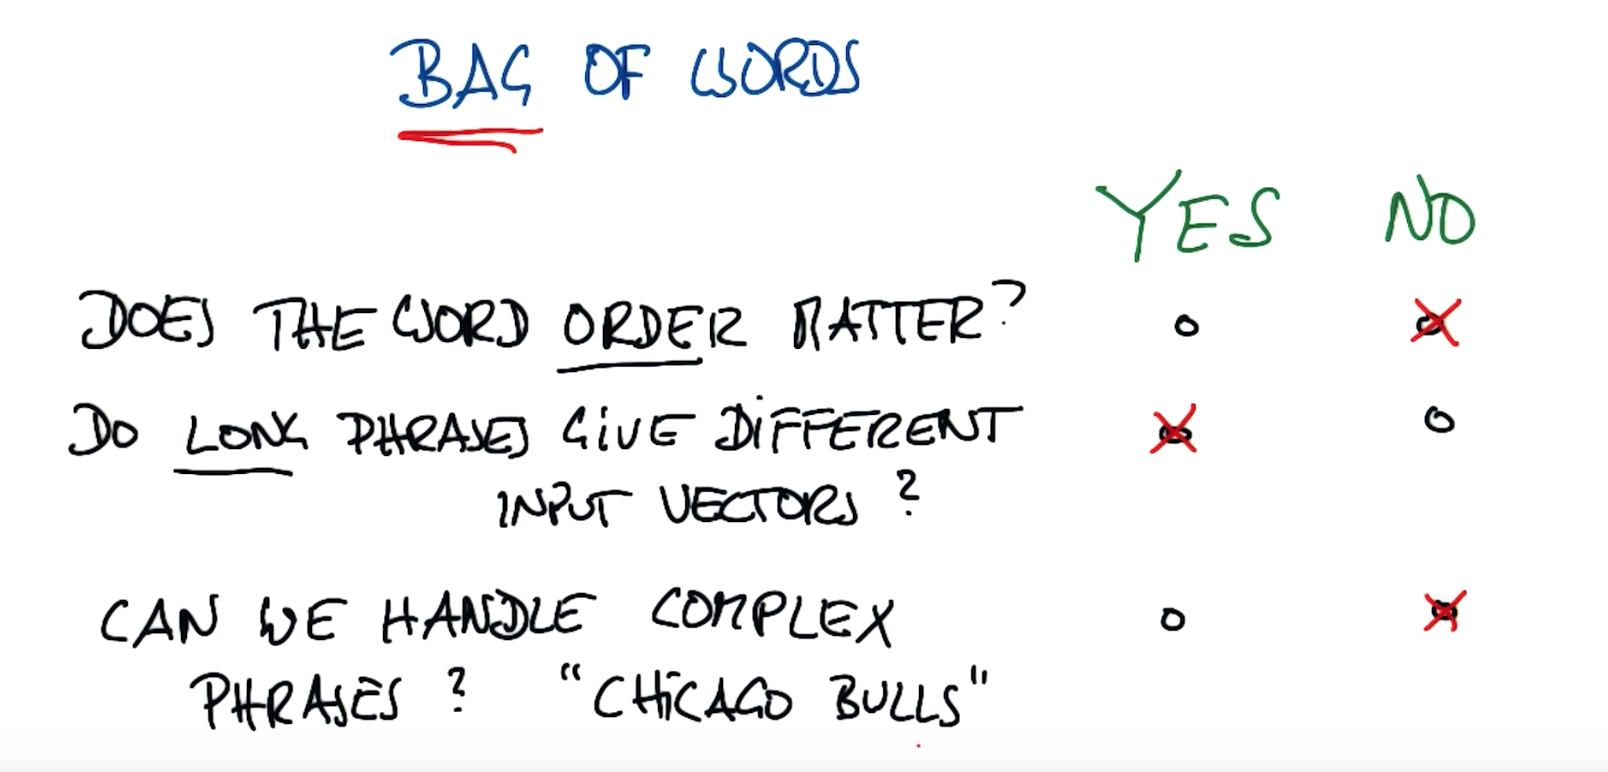 BAG OF WORDS
YES NO
DOES THE WORD ORDER MATTER?
DO LONG PHRASES GIVE DIFFERENT
INPUT VECTORS?
CAN WE HANDLE COMPLEX
PHRASES? "CHICAGO BULLS"